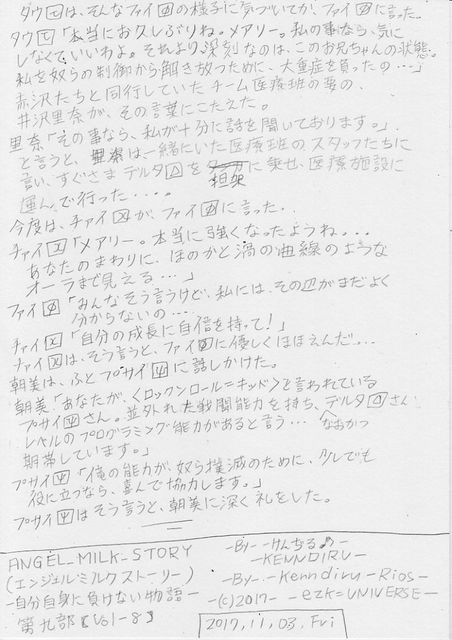 タウ[τ]は、そんなファイ[φ]の様子に気づいてか、ファイ[φ]に言った。
タウ[τ]「本当にお久しぶりね。メアリー。私の事なら、気に
しなくていいわよ。それより深刻なのは、このお兄ちゃんの状態。
私を奴らの制御から解き放つために、大重症を負ったの…」
赤沢たちと同行していたチーム医療班の要の、
井沢里奈が、その言葉にこたえた。
里奈「その事なら、私が十分に話を聞いております。」
と言うと、里奈は一緒にいた医療班のスタッフたちに
言い、すぐさまデルタ[△]を担架に乗せ、医療施設に
運んで行った・・・。
今度は、チァイ[χ]が、ファイ[φ]に言った。
チァイ[χ]「メアリー。本当に強くなったようね…。
あなたのまわりに、ほのかと渦の曲線のような
オーラまで見える…」
ファイ[φ]「みんなそう言うけど、私には、その辺がまだよく
分からないの…」
チァイ[χ]「自分の成長に自信を持って!」
チァイ[χ]は、そう言うと、ファイ[φ]に優しくほほえんだ…
朝美は、ふとプサイ[ψ]に話しかけた。
朝美「あなたが、<ロックンロール=キッド>と言われている
プサイ[ψ]さん。並外れた戦闘能力を持ち、デルタ[△]さん
レベルのプログラミング能力があると言う… なおかつ
期帯しています。」
プサイ[ψ]「俺の能力が、奴ら撲滅のために、少しでも
役に立つなら、喜んで協力します。」
プサイ[ψ]はそう言うと、朝美に深く礼をした。
ANGEL_MILK_STORY
(エンジェルミルクストーリー)
-自分自身に負けない物語-
第九部【Vol-8】
-By--けんぢる♪-
-KENNDIRU-
-By--Kenndiru-Rios-
-(c)2017- -ezk=UNIVERSE-
2017,11,03,Fri